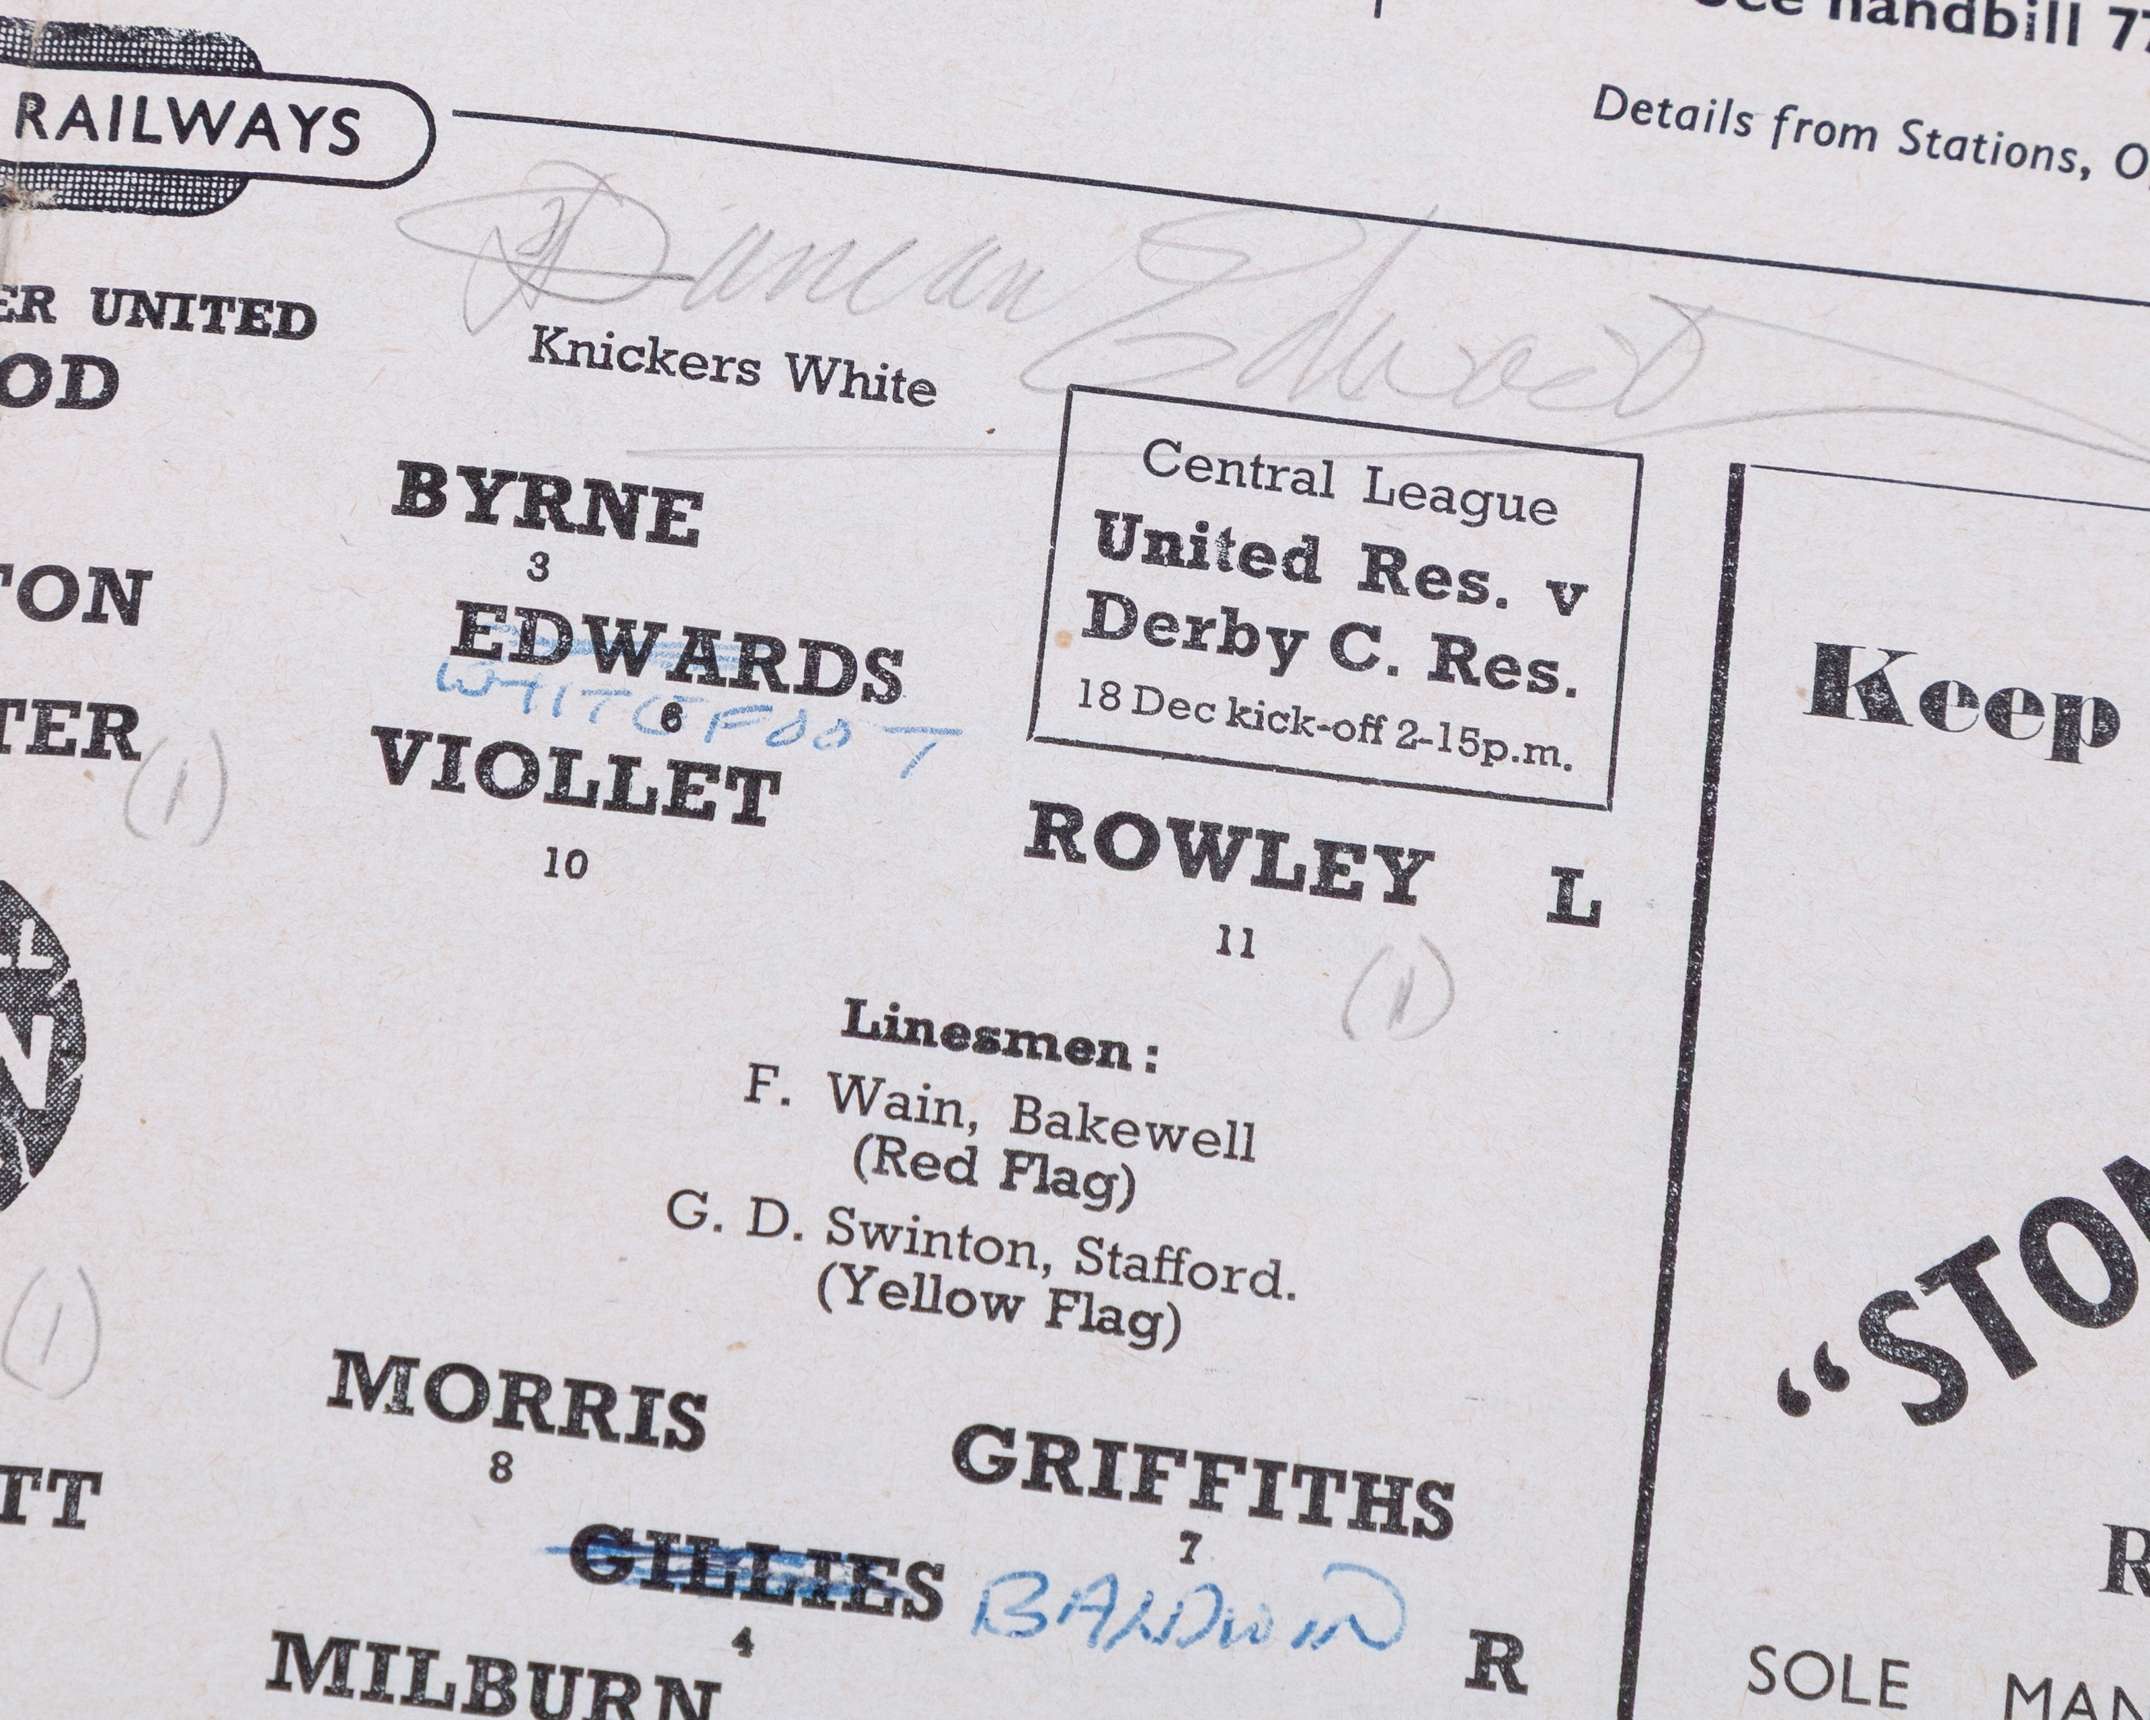 See handbill 77
Details from Stations, O
RAILWAYS
Duncan Edwards
ER UNITED
Knickers White
OD
BYRNE
3
Central League
United Res. v
Derby C. Res.
18 Dec kick-off 2-15p.m.
TON
EDWARDS
WHITEFOOT
6
Keep
TER
(1)
VIOLLET
10
ROWLEY L
11
(1)
LL
N
Linesmen:
F. Wain, Bakewell
(Red Flag)
G. D. Swinton, Stafford.
(Yellow Flag)
(1)
"STO
MORRIS
8
GRIFFITHS
7
TT
GILLIES BALDWIN
4
R
R
MILBURN
SOLE MAN